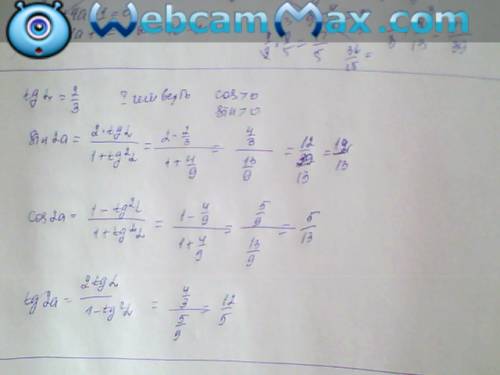 WebcamMax.com
tg α = 2/3 I четверть cos>0
sin>0
sin 2α = 2·tg α / 1+tg²α = 2·2/3 / 1+4/9 = 4/3 / 13/9 = 12/13 = 12/13
cos 2α = 1-tg²α / 1+tg²α = 1-4/9 / 1+4/9 = 5/9 / 13/9 = 5/13
tg 2α = 2tg α / 1-tg²α = 4/3 / 5/9 = 12/5